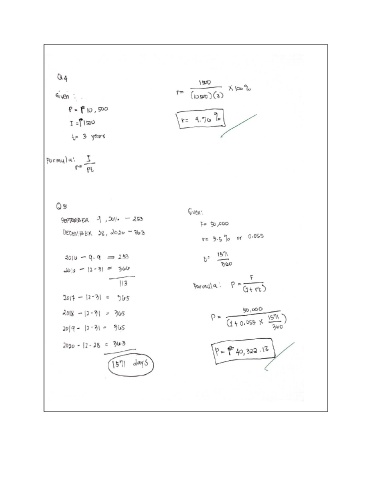 Q4
Given :
P = ₱ 10,500
I = ₱ 1500
t = 3 years
Formula: r = I / Pt
r = 1500 / (10500)(3) × 100%
r = 4.76 %
Q5
SEPTEMBER 9, 2016 - 253
DECEMBER 28, 2020 - 363
2016 - 9 - 9 = 253
- 12 - 31 = 366
113
2017 - 12 - 31 = 365
2018 - 12 - 31 = 365
2019 - 12 - 31 = 365
2020 - 12 - 28 = 363
1571 days
Given:
F = 50,000
r = 5.5 % or 0.055
t = 1571 / 360
Formula : P = F / (1 + rt)
P = 50,000 / (1 + 0.055 × 1571 / 360)
P = ₱ 40,322.13